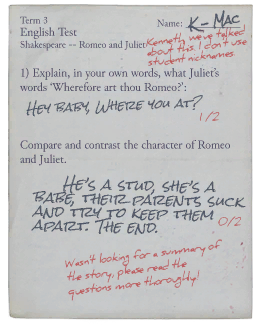 Term 3
English Test
Shakespeare -- Romeo and Juliet
Name: K-Mac
Kenneth, we've talked
about this. I don't use
student nicknames.
1) Explain, in your own words, what Juliet's
words 'Wherefore art thou Romeo?':
Hey baby, where you at?
1/2
Compare and contrast the character of Romeo
and Juliet.
He's a stud, she's a
babe, their parents suck
and try to keep them
apart. The end.
0/2
Wasn't looking for a summary of
the story, please read the
questions more thoroughly!